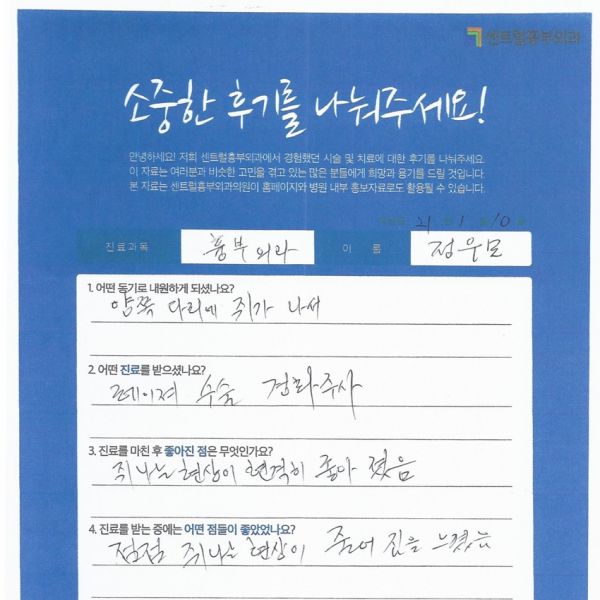 센트럴흉부외과
소중한 후기를 나눠주세요!
안녕하세요! 저희 센트럴흉부외과에서 경험했던 시술 및 치료에 대한 후기를 나눠주세요.
이 자료는 여러분과 비슷한 고민을 겪고 있는 많은 분들에게 희망과 용기를 드릴 것입니다.
본 자료는 센트럴흉부외과의원이 홈페이지와 병원 내부 홍보자료로도 활용될 수 있습니다.
21 1 10
진료과목 흉부외과 이 름 정우모
1. 어떤 동기로 내원하게 되셨나요?
양쪽 다리에 쥐가 나서
2. 어떤 진료를 받으셨나요?
레이져 수술 경화주사
3. 진료를 마친 후 좋아진 점은 무엇인가요?
쥐나는 현상이 현격히 좋아 졌음
4. 진료를 받는 중에는 어떤 점들이 좋았었나요?
점점 쥐나는 현상이 줄어 짐을 느꼈음